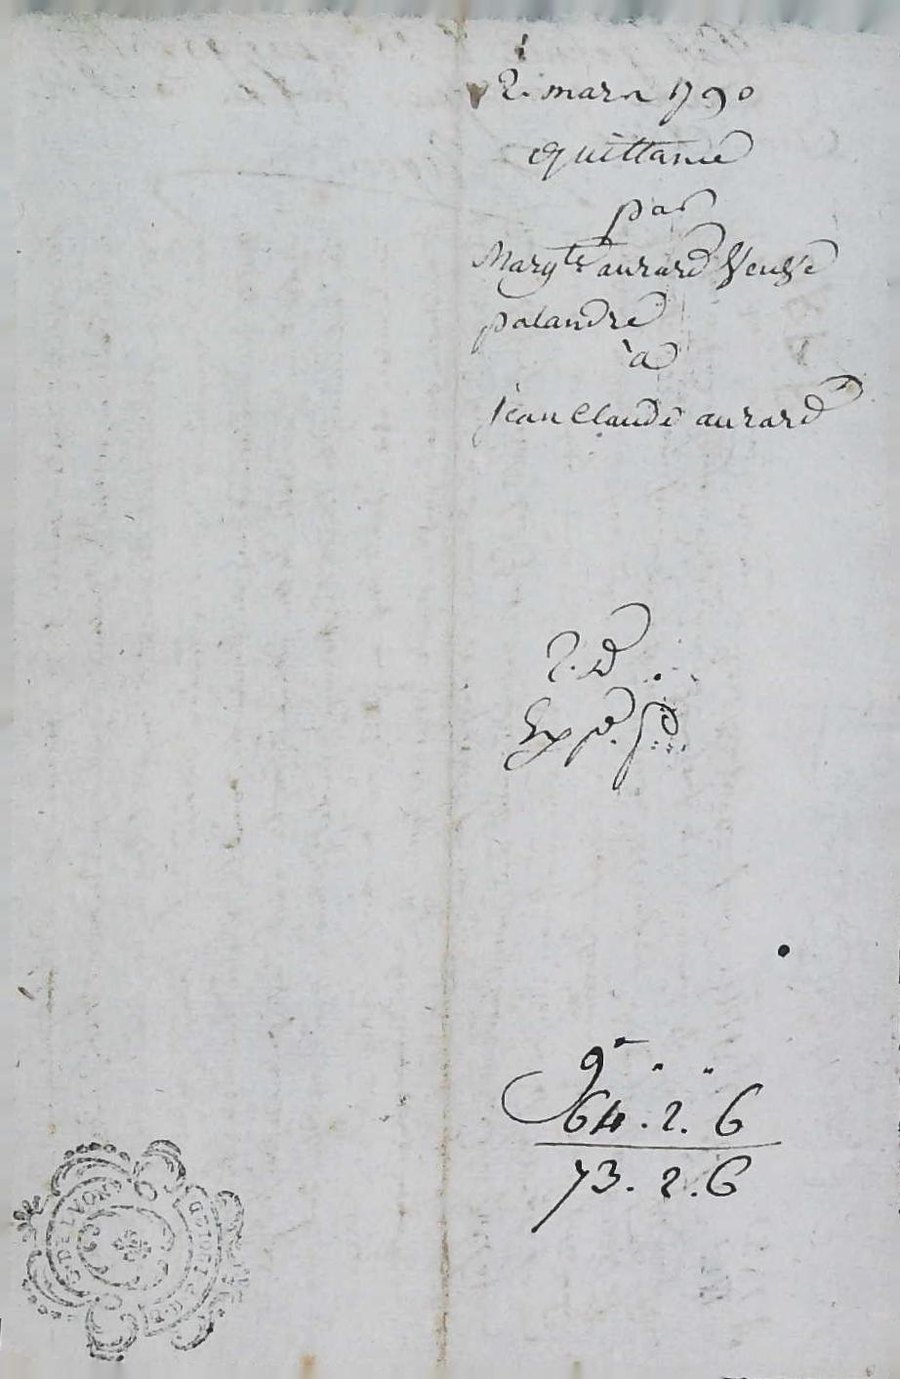 2. mars 1790
quittance
par
Margte aurard Veuve
palandre
à
jean Claude aurard
2. d
Exp.
9 " "
64 . 2 . 6
73 . 2 . 6
DE LYON